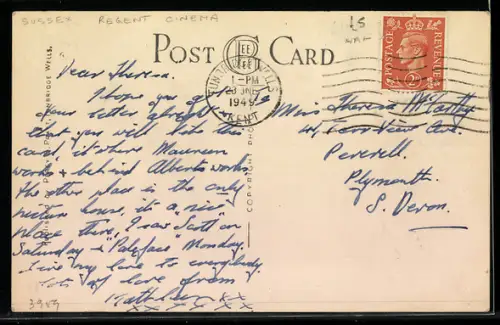 SUSSEX REGENT CINEMA
15
POST CARD
POSTAGE REVENUE
TUNBRIDGE WELLS
1-PM
1949
KENT
COPYRIGHT PHO
BRIDGE WELLS.
Dear Theresa.
I hope you got
your letter alright
that you will like this
card, it where Maureen
works & behind Alberts works
the other place is the only
picture house, it's a nice
place there, I saw "Scott" on
Saturday & "Paleface" Monday.
Give my love to everybody.
Lots of love from
Kathleen xx
xx x x x x
3909
Miss Theresa McCarthy
View Ave.
Peverell.
Plymouth.
S. Devon.